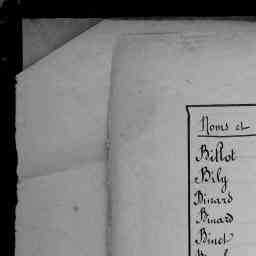 Noms et
Billot
Bily
Binard
Binard
Binet